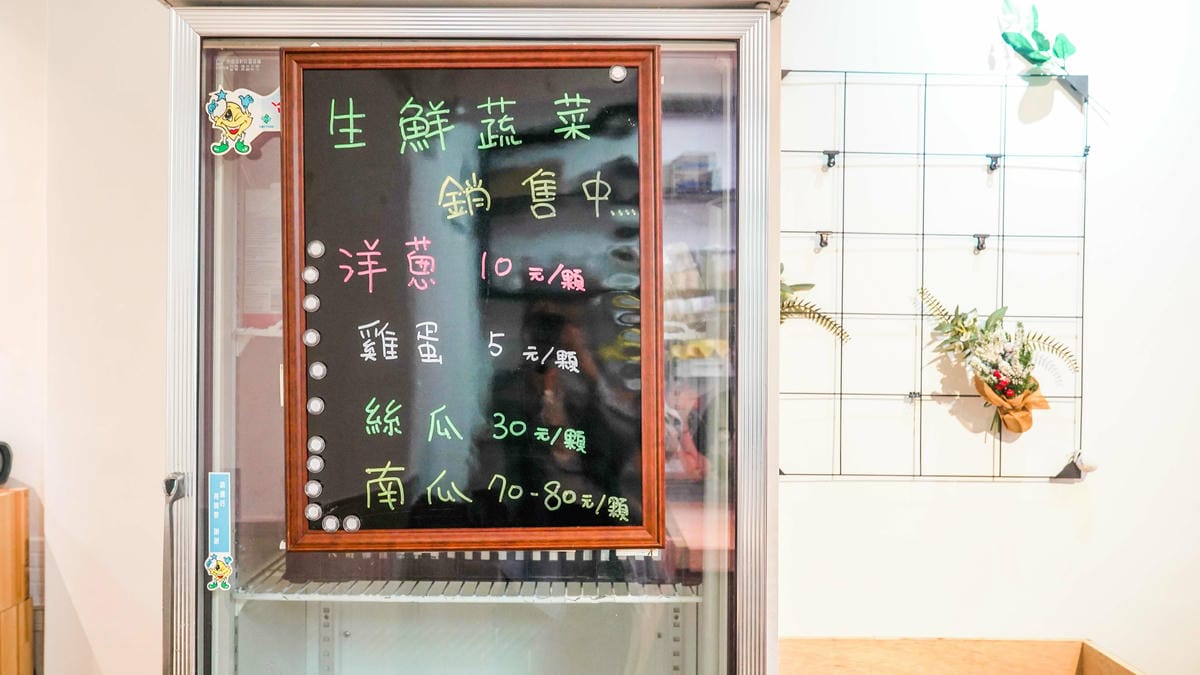 生鮮蔬菜
銷售中....
洋蔥 10元/顆
雞蛋 5元/顆
絲瓜 30元/顆
南瓜 70-80元/顆